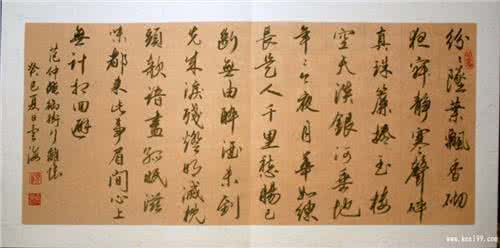 紛〻墜葉飄香砌
夜寂靜寒聲碎
真珠簾捲玉樓
空天淡銀河垂地
年〻今夜月華如練
長是人千里愁腸已
斷無由醉酒未到
先成淚殘燈明滅枕
頭欹諳盡孤眠滋
味都來此事眉間心上
無計相回避
范仲淹御街行離懷
癸巳夏日雲海